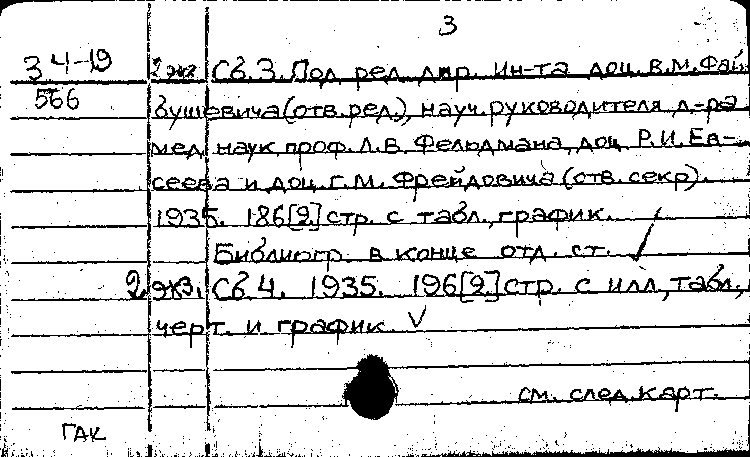 3
34-19 2 экз Сб. 3. Под ред. дир. ин-та доц. В.М. Фай-
566 бушевича (отв. ред.), науч. руководителя д-ра
мед. наук проф. Л.В. Фельдмана, доц. Р.И. Ев-
сеева и доц. Г.М. Фрейдовича (отв. секр).
1935. 186[2] стр. с табл., график.
Библиогр. в конце отд. ст.
2 экз. Сб 4. 1935. 196[2] стр. с илл., табл.,
черт. и график.
см. след. карт.
ГАК